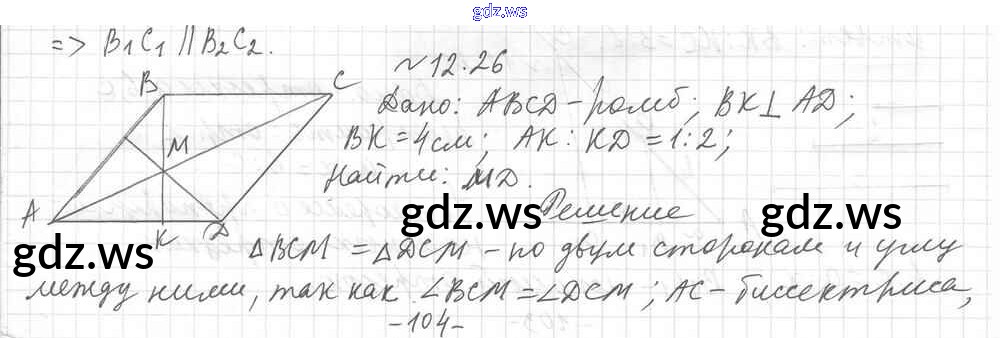 gdz.ws
=> B₁C₁ || B₂C₂.
N 12.26
B
C
Дано: ABCD - ромб; BK ⊥ AD;
BK = 4 см; AK : KD = 1:2;
M
Найти: MD.
A
K
D
gdz.ws
gdz.ws
Решение
gdz.ws
△BCM = △DCM - по двум сторонам и углу
между ними, так как ∠BCM = ∠DCM; AC - биссектриса,
-104-